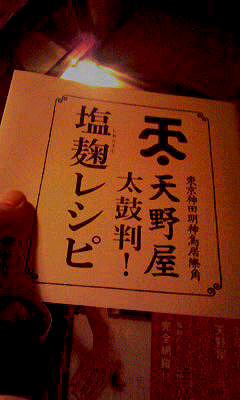 東京神田明神鳥居際角
天野屋
太鼓判！
塩麹レシピ
しおこうじ
天野谷
完全網羅